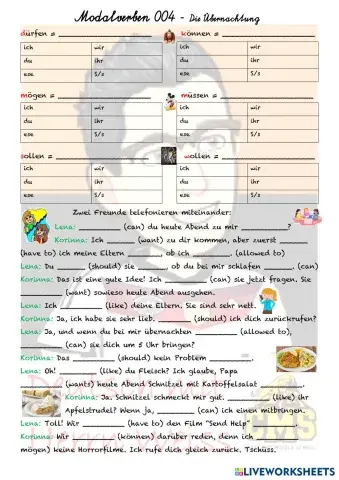 Modalverben 004 - Die Übernachtung
dürfen = ____________ können = ____________
ich wir ich wir
du ihr du ihr
ese S/s ese S/s
mögen = ____________ müssen = ____________
ich wir ich wir
du ihr du ihr
ese S/s ese S/s
sollen = ____________ wollen = ____________
ich wir ich wir
du ihr du ihr
ese S/s ese S/s
Zwei Freunde telefonieren miteinander:
Lena: ________ (can) du heute Abend zu mir ________?
Korinna: Ich ________ (want) zu dir kommen, aber zuerst ________
(have to) ich meine Eltern ________, ob ich ________. (allowed to)
Lena: Du ________ (should) sie ________, ob du bei mir schlafen ________. (can)
Korinna: Das ist eine gute Idee! Ich ________ (can) sie jetzt fragen. Sie
________ (want) sowieso heute Abend ausgehen.
Lena: Ich ________ (like) deine Eltern. Sie sind sehr nett.
Korinna: Ja, ich habe sie sehr lieb. ________ (should) ich dich zurückrufen?
Lena: Ja, und wenn du bei mir übernachten ________ (allowed to),
________ (can) sie dich um 5 Uhr bringen?
Korinna: Das ________ (should) kein Problem ________.
Lena: Oh! ________ (like) du Fleisch? Ich glaube, Papa
________ (wants) heute Abend Schnitzel mit Kartoffelsalat ________.
Korinna: Ja. Schnitzel schmeckt mir gut. ________ (like) ihr
Apfelstrudel? Wenn ja, ________ (can) ich einen mitbringen.
Lena: Toll! Wir ________ (have to) den Film "Send Help" ________
Korinna: Wir ________ (können) darüber reden, denn ich ________
mögen) keine Horrorfilme. Ich rufe dich gleich zurück, Tschüss.
CMS
LIVEWORKSHEETS